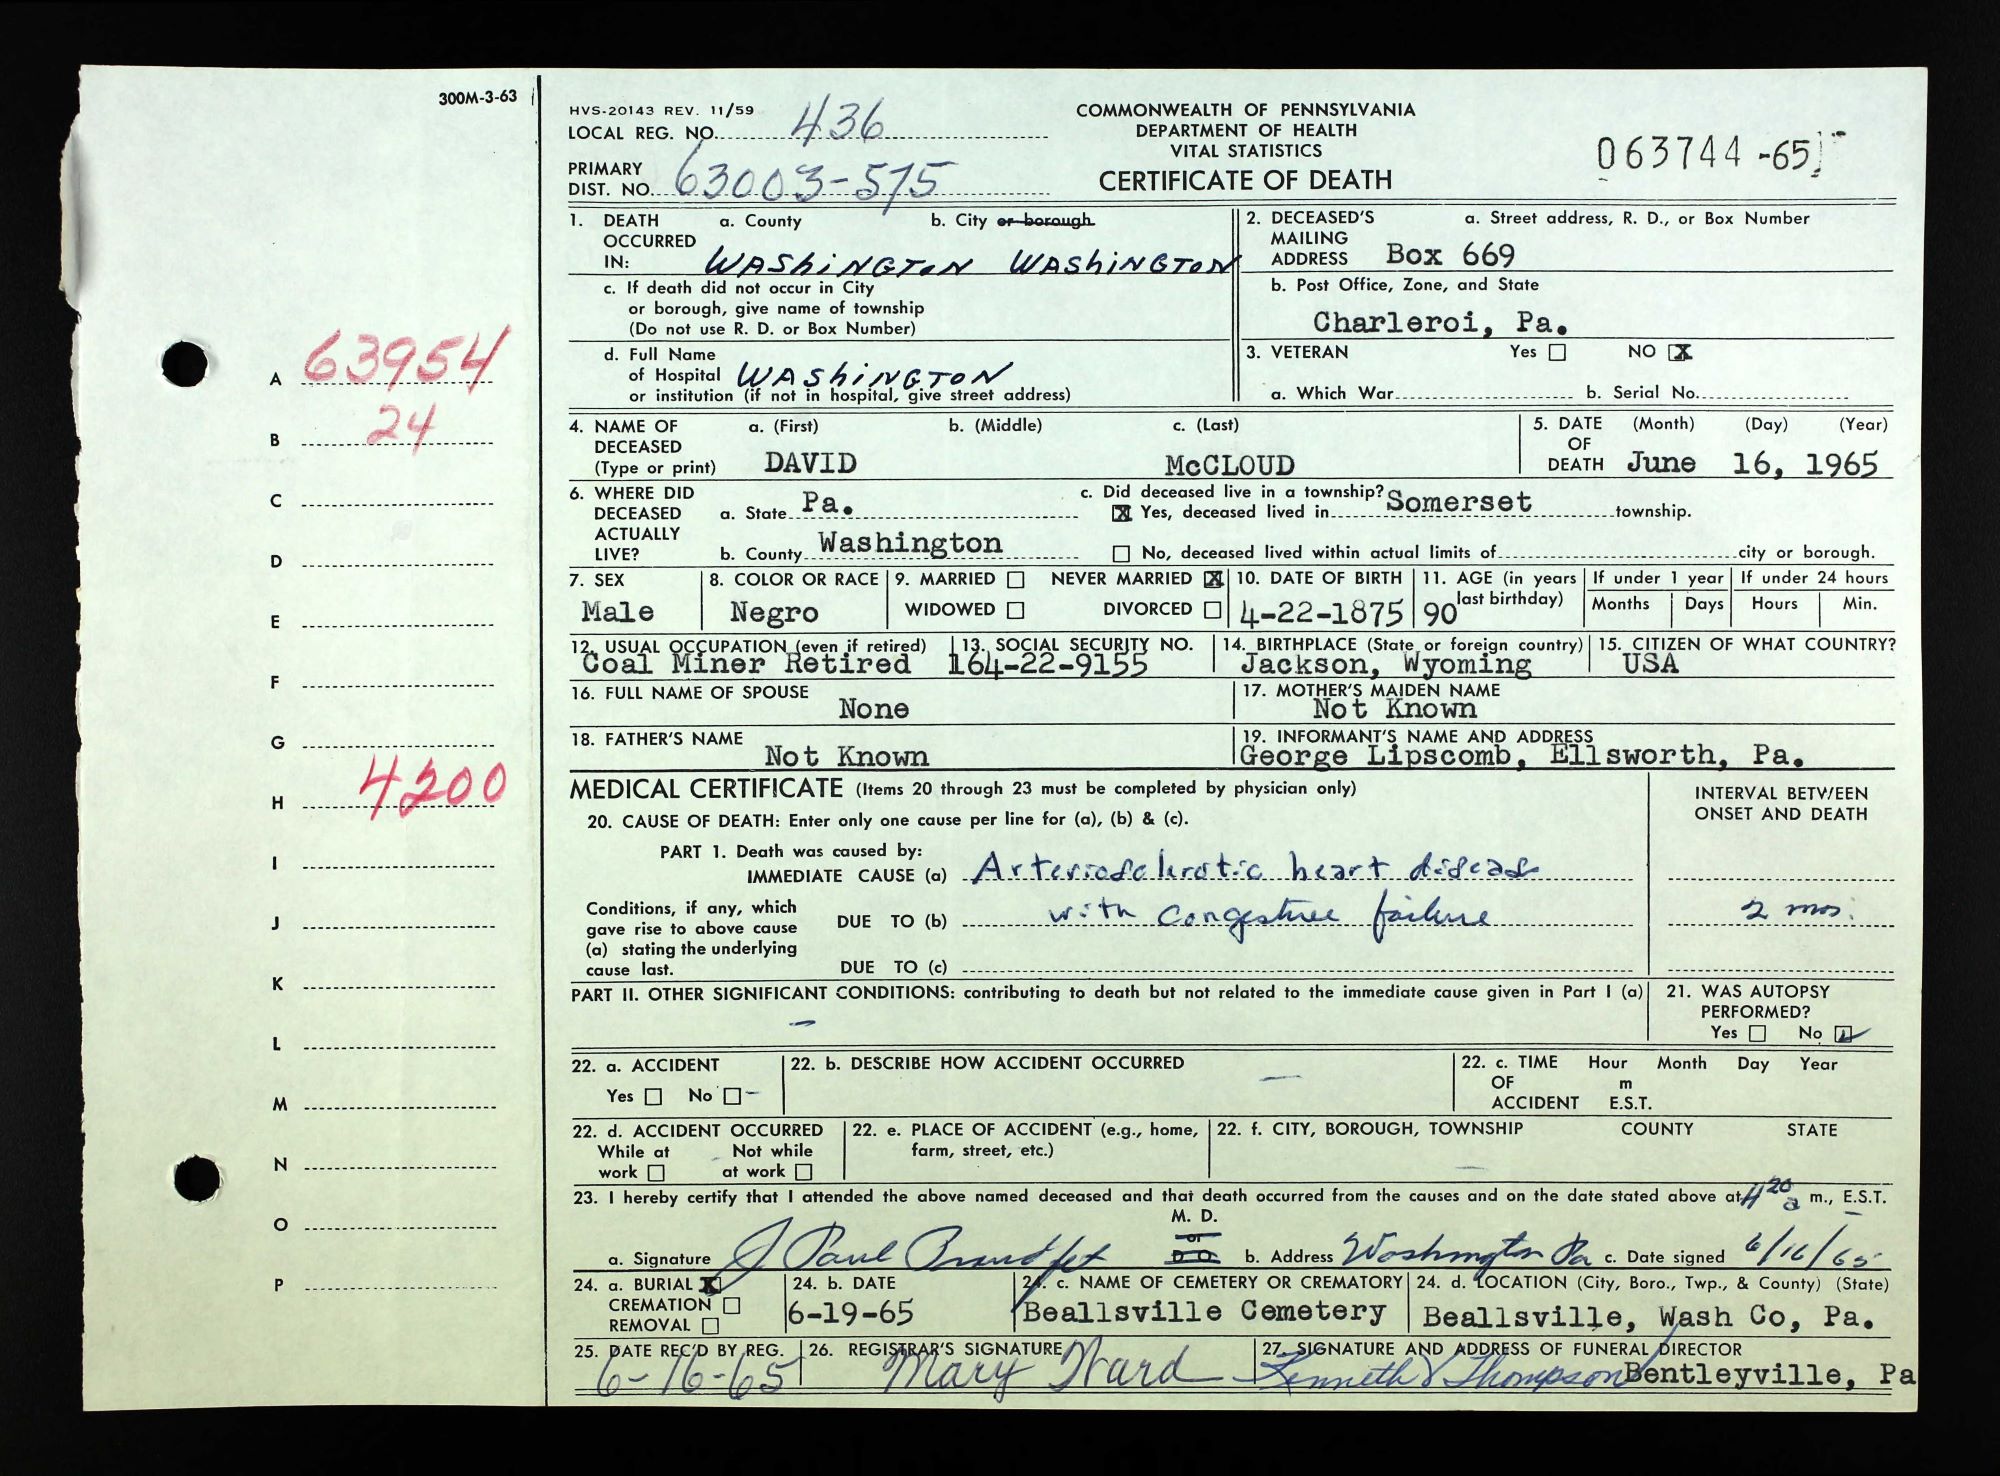 300M-3-63
HVS-20143 REV. 11/59
LOCAL REG. NO. 436
PRIMARY
DIST. NO. 63003-575
COMMONWEALTH OF PENNSYLVANIA
DEPARTMENT OF HEALTH
VITAL STATISTICS
CERTIFICATE OF DEATH
063744-65
1. DEATH OCCURRED IN: a. County b. City or borough
WAShiNGToN WAShiNGToN
c. If death did not occur in City
or borough, give name of township
(Do not use R. D. or Box Number)
d. Full Name
of Hospital WAShiNGToN
or institution (if not in hospital, give street address)
2. DECEASED'S MAILING ADDRESS a. Street address, R. D., or Box Number
Box 669
b. Post Office, Zone, and State
Charleroi, Pa.
3. VETERAN Yes NO X
a. Which War b. Serial No.
4. NAME OF DECEASED (Type or print) a. (First) b. (Middle) c. (Last)
DAVID McCLOUD
5. DATE OF DEATH (Month) (Day) (Year)
June 16, 1965
6. WHERE DID DECEASED ACTUALLY LIVE?
a. State Pa.
b. County Washington
c. Did deceased live in a township?
X Yes, deceased lived in Somerset township.
No, deceased lived within actual limits of city or borough.
7. SEX
Male
8. COLOR OR RACE
Negro
9. MARRIED NEVER MARRIED X
WIDOWED DIVORCED
10. DATE OF BIRTH
4-22-1875
11. AGE (in years last birthday)
90
If under 1 year
Months Days
If under 24 hours
Hours Min.
12. USUAL OCCUPATION (even if retired)
Coal Miner Retired
13. SOCIAL SECURITY NO.
164-22-9155
14. BIRTHPLACE (State or foreign country)
Jackson, Wyoming
15. CITIZEN OF WHAT COUNTRY?
USA
16. FULL NAME OF SPOUSE
None
17. MOTHER'S MAIDEN NAME
Not Known
18. FATHER'S NAME
Not Known
19. INFORMANT'S NAME AND ADDRESS
George Lipscomb, Ellsworth, Pa.
MEDICAL CERTIFICATE (Items 20 through 23 must be completed by physician only)
INTERVAL BETWEEN
ONSET AND DEATH
20. CAUSE OF DEATH: Enter only one cause per line for (a), (b) & (c).
PART 1. Death was caused by:
IMMEDIATE CAUSE (a) Arteriosclerotic heart disease
Conditions, if any, which
gave rise to above cause
(a) stating the underlying
cause last.
DUE TO (b) with congestive failure 2 mos.
DUE TO (c)
PART II. OTHER SIGNIFICANT CONDITIONS: contributing to death but not related to the immediate cause given in Part I (a)
–
21. WAS AUTOPSY
PERFORMED?
Yes No ✓
22. a. ACCIDENT
Yes No –
22. b. DESCRIBE HOW ACCIDENT OCCURRED
–
22. c. TIME OF ACCIDENT Hour Month Day Year
m
E.S.T.
22. d. ACCIDENT OCCURRED
While at work Not while at work
22. e. PLACE OF ACCIDENT (e.g., home,
farm, street, etc.)
22. f. CITY, BOROUGH, TOWNSHIP COUNTY STATE
–
23. I hereby certify that I attended the above named deceased and that death occurred from the causes and on the date stated above at 4 20 a m., E.S.T.
a. Signature J Paul M. D. or D O b. Address Washington Pa c. Date signed 6/16/65
24. a. BURIAL X
CREMATION
REMOVAL
24. b. DATE
6-19-65
24. c. NAME OF CEMETERY OR CREMATORY
Beallsville Cemetery
24. d. LOCATION (City, Boro., Twp., & County) (State)
Beallsville, Wash Co, Pa.
25. DATE REC'D BY REG.
6-16-65
26. REGISTRAR'S SIGNATURE
Mary Ward
27. SIGNATURE AND ADDRESS OF FUNERAL DIRECTOR
Kenneth V Thompson Bentleyville, Pa
A 63954
B 24
C
D
E
F
G
H 4200
I
J
K
L
M
N
O
P